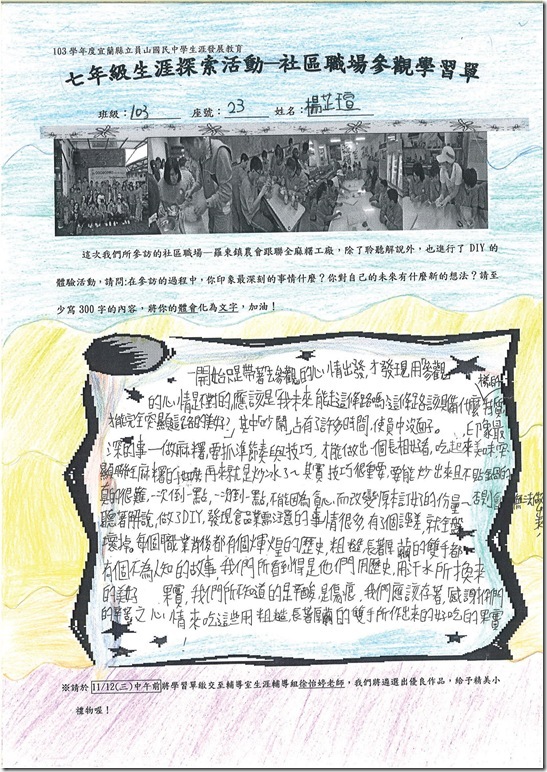 103學年度宜蘭縣立員山國民中學生涯發展教育
七年級生涯探索活動─社區職場參觀學習單
班級：103 座號：23 姓名：楊芷瑄
這次我們所參訪的社區職場─羅東鎮農會跟聯全麻糬工廠，除了聆聽解說外，也進行了 DIY 的
體驗活動，請問：在參訪的過程中，你印象最深刻的事情什麼？你對自己的未來有什麼新的想法？請至
少寫 300 字的內容，將你的體會化為文字，加油！
一開始只是帶著參觀的心情出發，才發現用「參觀」
的心情是不對的應該是「我未來能走這條路嗎，這條路該具備什麼
才能完全突顯這條路的美好？」其中炒
深的事─做麻糬，要抓準節奏與技巧，才能做出一個長相出眾，吃起來美味
麻糬的 再來就是炒冰了～其實技巧很重要，要能炒出來且不黏鍋
真的很難，一次倒一點，一次倒一點，不能因為貪心，而改變原本訂好的份量～否則
聽著解說，做了DIY，發現食品業需注意的事情很多，有3個課業，就全部
壞掉。每個職業背後都有個輝煌的歷史，粗糙，長著厚繭的雙手都
有個不為人知的故事，我們所看到得是他們用歷史，用汗水所換來
的美好果實，我們所不知道的是辛酸，是傷疤，我們應該存著，感謝你們
的辛苦之心情來吃這些用粗糙，長著厚繭的雙手所作出來的好吃的果實
！
※請於 11/12(三)中午前將學習單繳交至輔導室生涯輔導組徐怡婷老師，我們將遴選出優良作品，給予精美小
禮物喔！